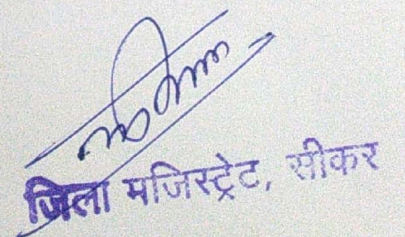 जिला मजिस्ट्रेट, सीकर